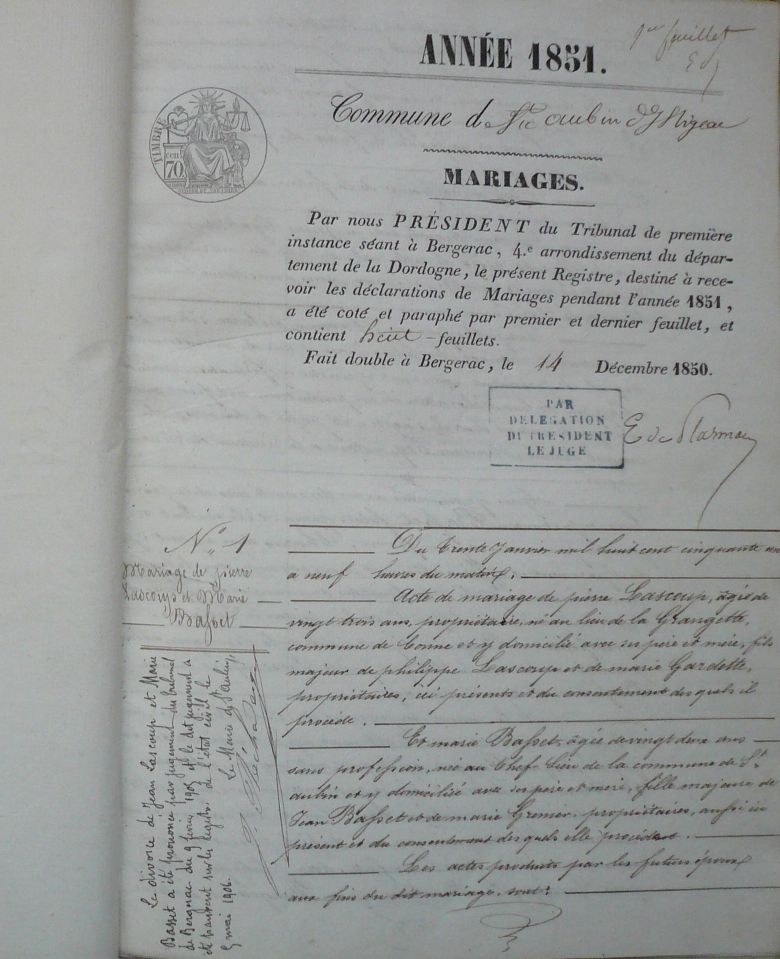 1er feuillet
ANNÉE 1851.
TIMBRE
70
Commune de St aubin
MARIAGES.
Par nous PRÉSIDENT du Tribunal de première
instance séant à Bergerac, 4.e arrondissement du dépar-
tement de la Dordogne, le présent Registre, destiné à rece-
voir les déclarations de Mariages pendant l'année 1851,
a été coté et paraphé par premier et dernier feuillet, et
contient huit feuillets.
Fait double à Bergerac, le 14 Décembre 1850.
PAR
DELEGATION
DU PRESIDENT
LE JUGE
E de
No 1
Mariage de pierre
Lascoup et Marie
Basset
Du trente Janvier mil huit cent cinquante un
a neuf heures du matin,
Acte de mariage de pierre Lascoup, agé de
vingt trois ans, propriétaire, né au lieu de la Grangette,
commune de et y domicilié avec ses père et mère, fils
majeur de philippe Lascoup et de marie Gardette,
propriétaires, ici présents et du consentement des quels il
procède.
Et marie Basset, agée de vingt deux ans
sans profession, née au Chef-lieu de la commune de St
aubin et y domicilié avec ses père et mère, fille majeure de
Jean Basset et de marie Grenier, propriétaires, aussi ici
présent et du consentement des quels elle procède.
Les actes produits par les futurs époux
aux fins du dit mariage, sont :
Le divorce de Jean Lascoup et Marie
Basset a été prononcé par jugement du tribunal
de Bergerac du 9 février 1905 et le dit jugement a
été transcrit sur les registres de l'état civil le
5 mai 1906. Le Maire de St Aubin,